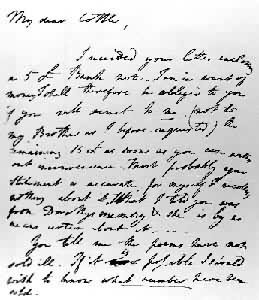 My dear Cottle,
I received your letter enclosing
a 5£ Bank note. I am in want of
money & shall therefore be obliged to you
if you will remit to me (not to
my Brother as I before requested) the
remaining 15£ as soon as you can
out inconvenience. Most probably your
statement is accurate for myself I recollect
nothing about it. What I told you was
from Dorothy's memory & she is by no
means certain about it
You tell me the poems have not
sold ill. If it is possible I should
wish to know what number have been
sold.